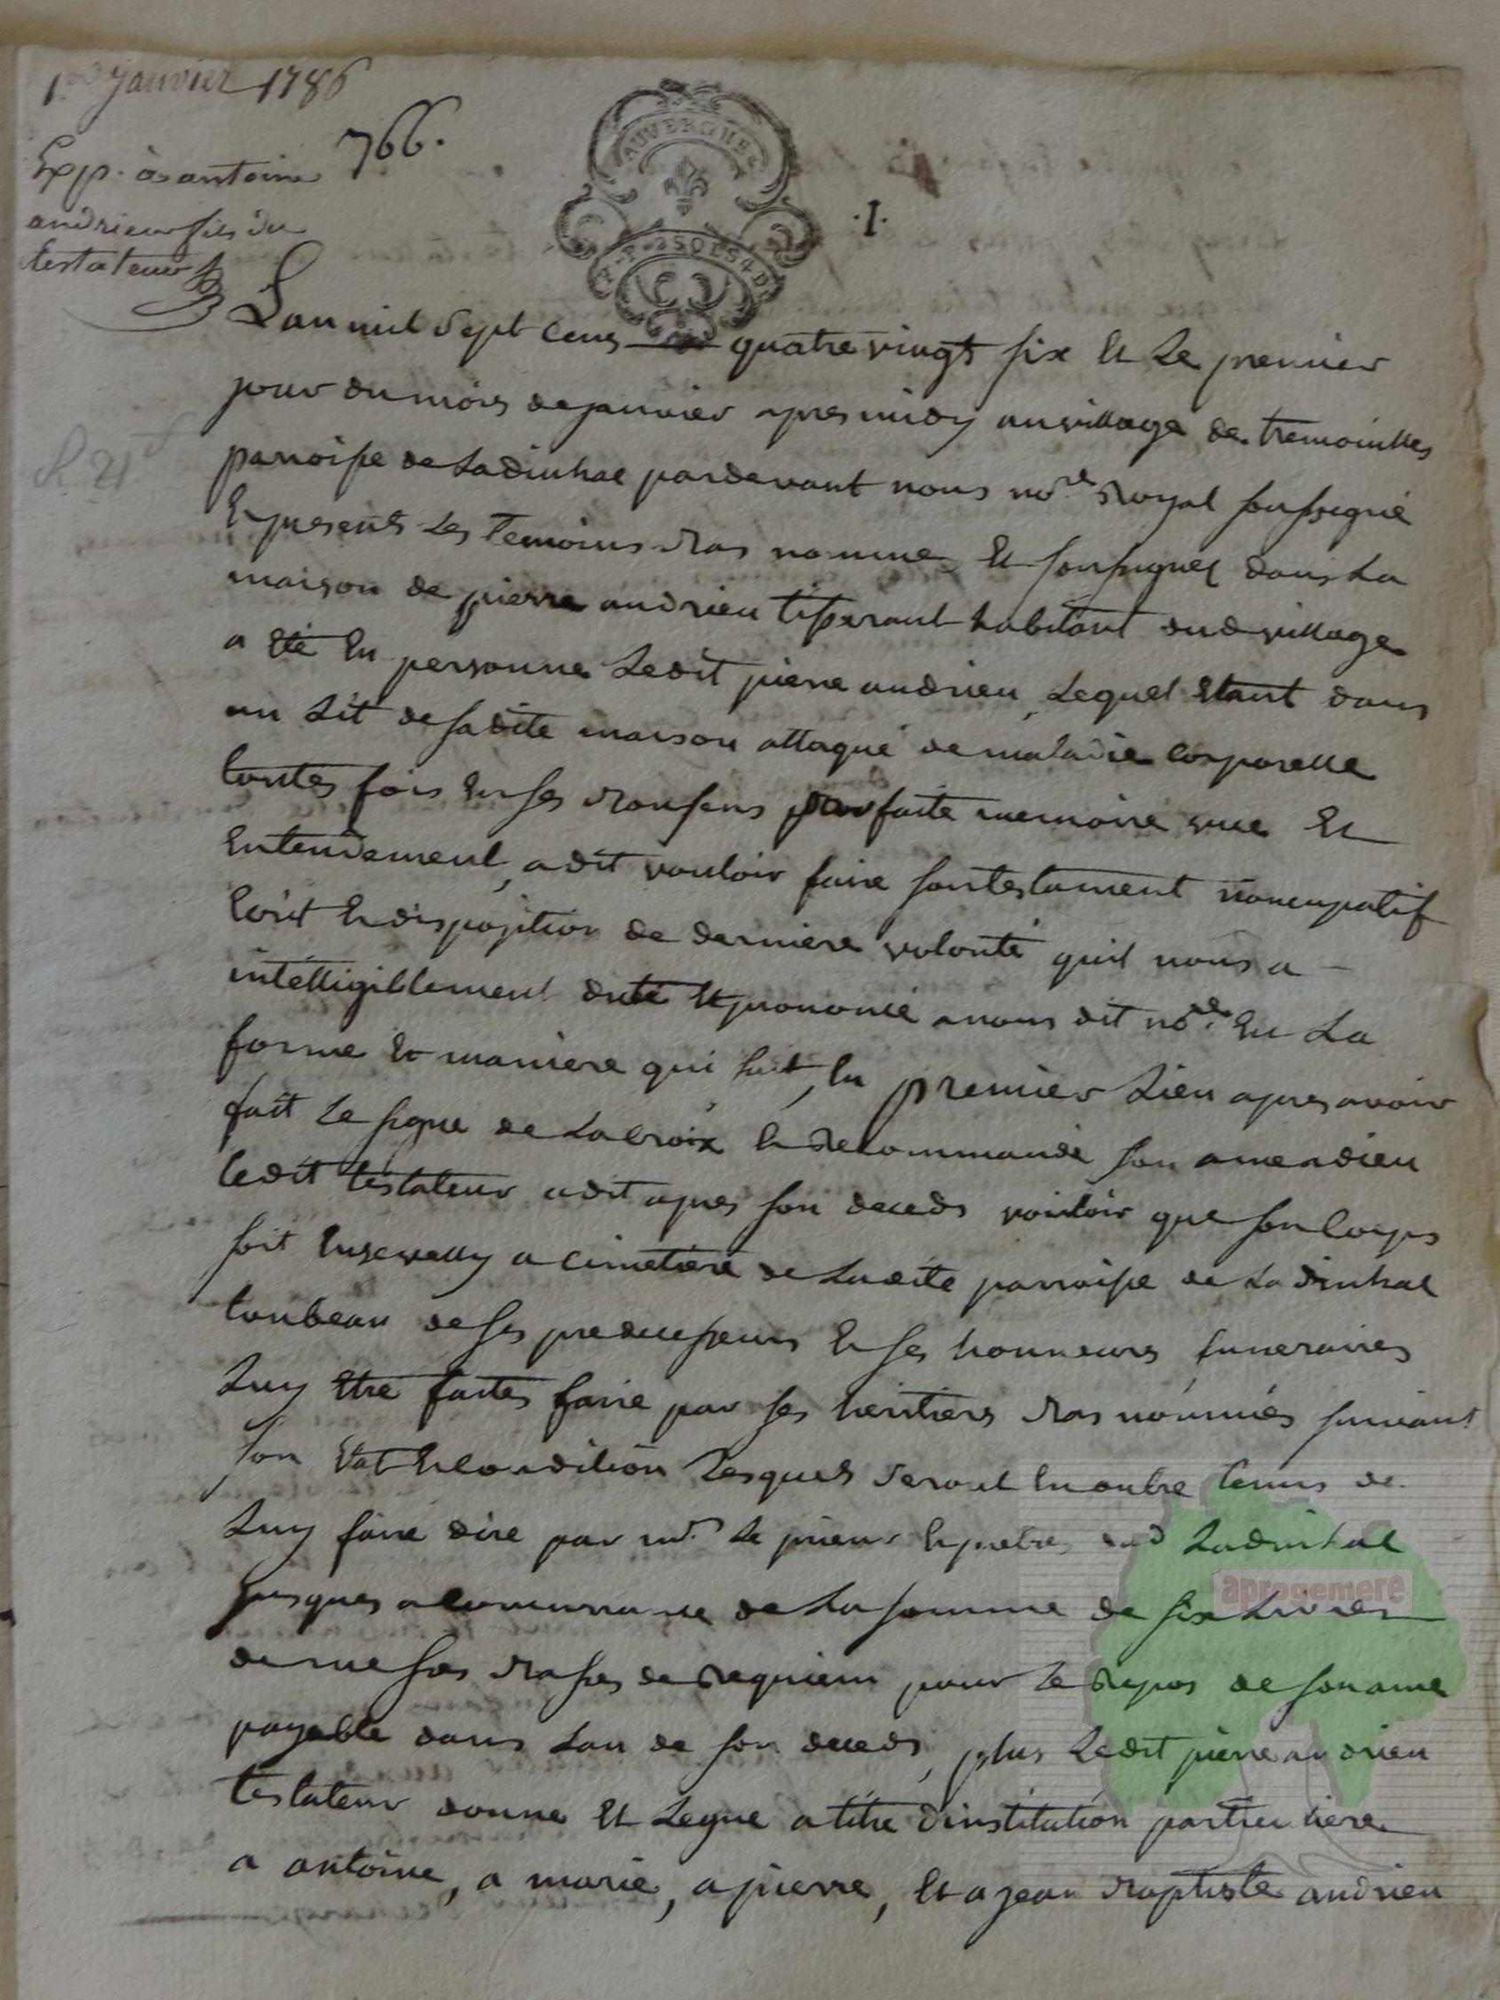 1er janvier 1786
766.
Exp. à antoine
andrieu fils du
testateur
AUVERGNE
.1.
L'an mil sept cens quatre vingt six et le premier
jour du mois de janvier apres midy au village de tremouilles
parroisse de Ladinhac pardevant nous nore Royal soussigné
et presents les temoins bas nommes et soussignes dans la
maison de pierre andrieu tisserant habitant dud village
a été en personne ledit pierre andrieu, lequel etant dans
un lit de sadite maison attaqué de maladie corporelle
toutes fois en ses bon sens parfaite memoire vue et
entendement, a dit vouloir faire son testament noncupatif
ecrit et disposition de derniere volonté quil nous a
intelligiblement dicté et prononcé a nous dit nore en la
forme et maniere qui suit, en premier lieu apres avoir
fait le signe de la croix et recommandé son ame a dieu
ledit testateur a dit apres son deceds vouloir que son corps
soit ensevelly a cimetiere de ladite parroisse de Ladinhac
tonbeau de ses predecesseurs et ses honneurs funeraires
luy etre faites faire par ses heritiers bas nommés suivant
son etat et condition lesquels seront en outre tenus de
luy faire dire par mr le prieur et pretres dud Ladinhac
jusques a concurrance de la somme de six livres
de messes basses de requiem pour le repos de son ame
payable dans l'an de son deceds, plus ledit pierre andrieu
testateur donne et legue a titre dinstitution particuliere
a antoine, a marie, a pierre, et a jean baptiste andrieu
aprogemere